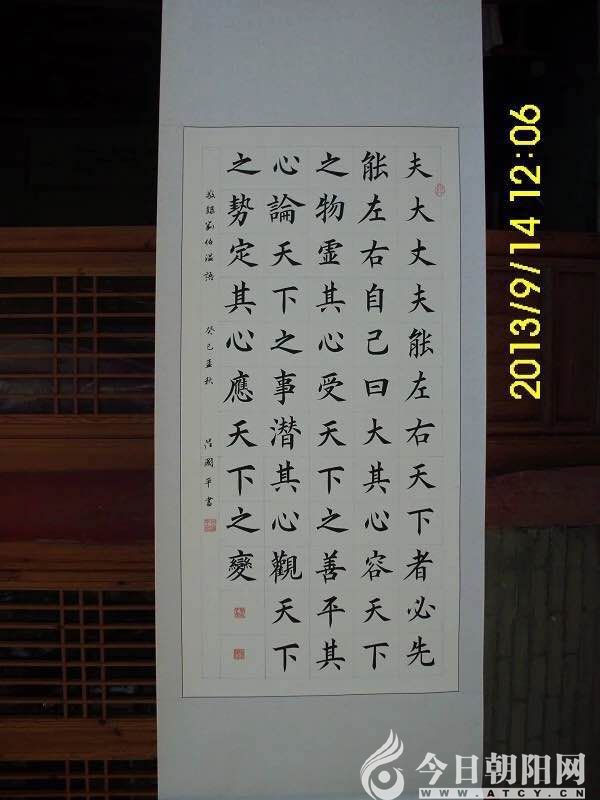 夫大丈夫能左右天下者必先
能左右自己曰大其心容天下
之物虚其心受天下之善平其
心論天下之事潜其心觀天下
之勢定其心應天下之變
敬録劉伯温語 癸巳孟秋 吕國平書
2013/9/14 12:06
今日朝阳网
WWW.ATCY.CN